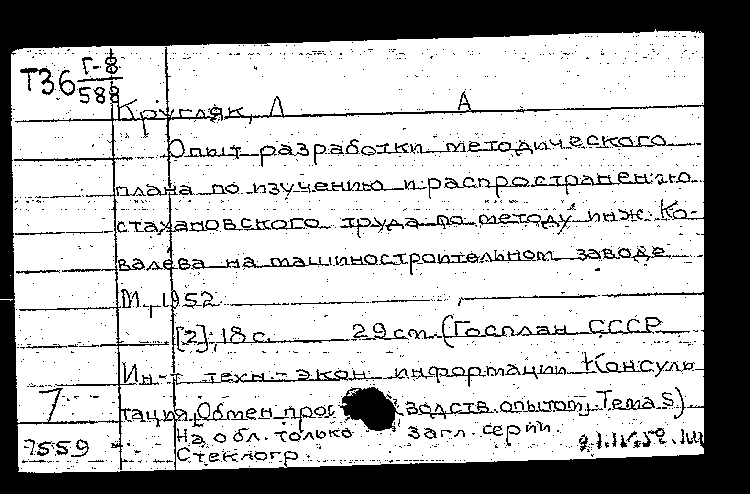 Т36 Г-8
588
Кругляк, Л А
Опыт разработки методического
плана по изучению и распространению
стахановского труда по методу инж. Ко-
валева на машиностроительном заводе
М., 1952
[2], 18 с. 29 см. (Госплан СССР
Ин-т техн.-экон. информации Консуль
тация, Обмен произ водств. опытом, Тема 5)
7
На обл. только загл. серии.
7559
Стеклогр.